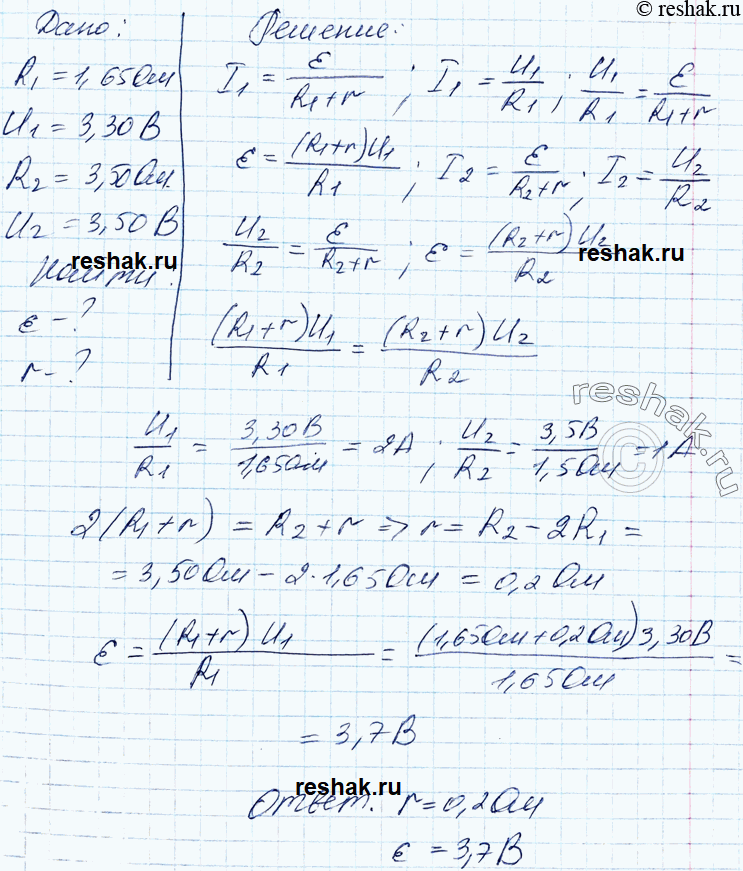 © reshak.ru
Дано:
R1 = 1,65 Ом
U1 = 3,30 В
R2 = 3,50 Ом.
U2 = 3,50 В
reshak.ru
Найти:
ε - ?
r - ?
Решение:
I1 = ε/(R1+r) ; I1 = U1/R1 ; U1/R1 = ε/(R1+r)
ε = (R1+r)U1/R1 ; I2 = ε/(R2+r) ; I2 = U2/R2
U2/R2 = ε/(R2+r) ; ε = (R2+r)U2/R2
reshak.ru
(R1+r)U1/R1 = (R2+r)U2/R2
reshak.ru
©
U1/R1 = 3,30В/1,65Ом = 2А ; U2/R2 = 3,5В/1,5Ом = 1А
2(R1+r) = R2+r => r = R2 - 2R1 =
= 3,50Ом - 2·1,65Ом = 0,2Ом
ε = (R1+r) U1/R1 = (1,65Ом+0,2Ом)3,30В/1,65Ом =
= 3,7В
reshak.ru
Ответ: r = 0,2Ом
ε = 3,7В